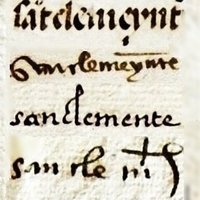 sāt clemēynt
San clemeynte
sanclemente
san cle m̄t